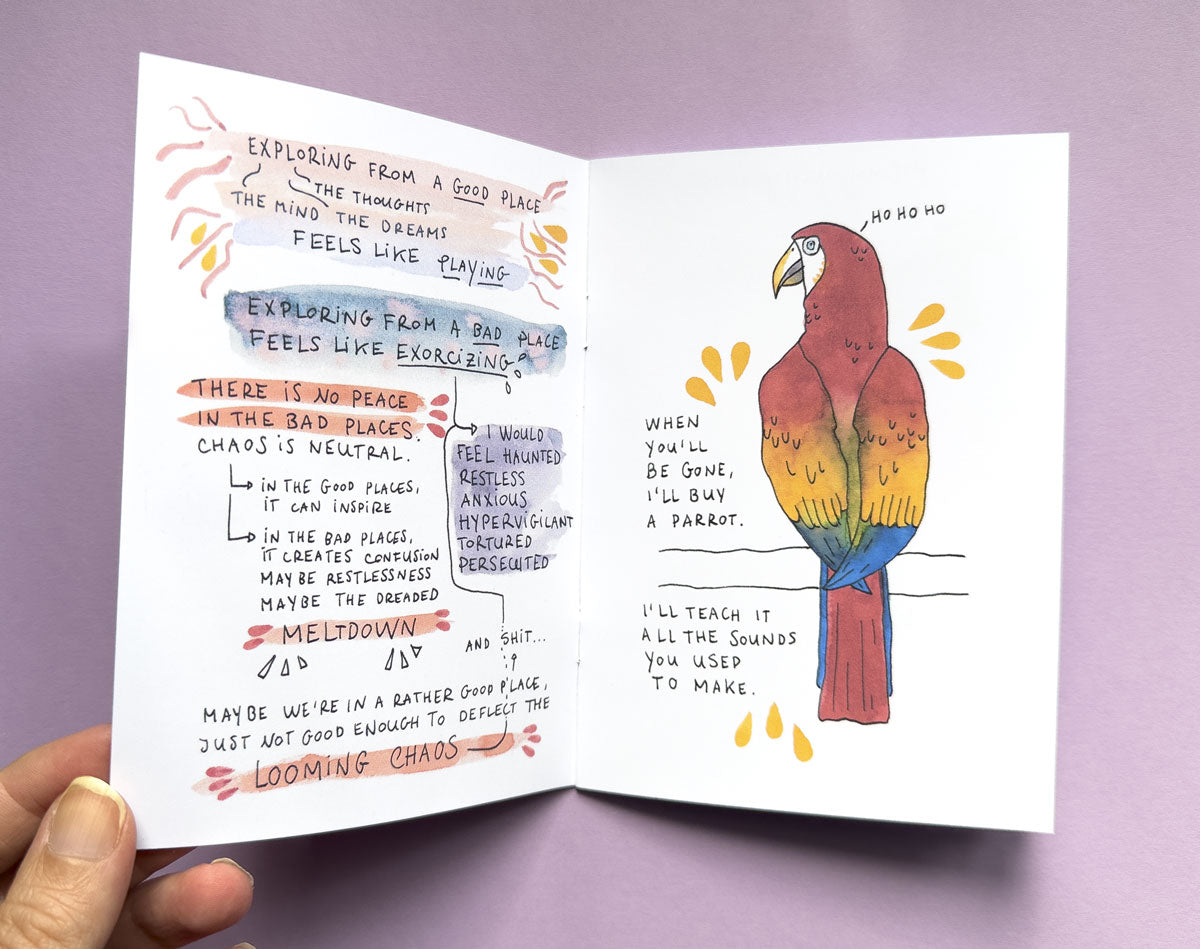 EXPLORING FROM A GOOD PLACE
THE THOUGHTS
THE MIND THE DREAMS
FEELS LIKE PLAYING
EXPLORING FROM A BAD PLACE
FEELS LIKE EXORCIZING
THERE IS NO PEACE
IN THE BAD PLACES.
CHAOS IS NEUTRAL.
IN THE GOOD PLACES,
IT CAN INSPIRE
IN THE BAD PLACES,
IT CREATES CONFUSION
MAYBE RESTLESSNESS
MAYBE THE DREADED
MELTDOWN
I WOULD
FEEL HAUNTED
RESTLESS
ANXIOUS
HYPERVIGILANT
TORTURED
PERSECUTED
AND SHIT...
MAYBE WE'RE IN A RATHER GOOD PLACE,
JUST NOT GOOD ENOUGH TO DEFLECT THE
LOOMING CHAOS
HO HO HO
WHEN
YOU'LL
BE GONE,
I'LL BUY
A PARROT.
I'LL TEACH IT
ALL THE SOUNDS
YOU USED
TO MAKE.